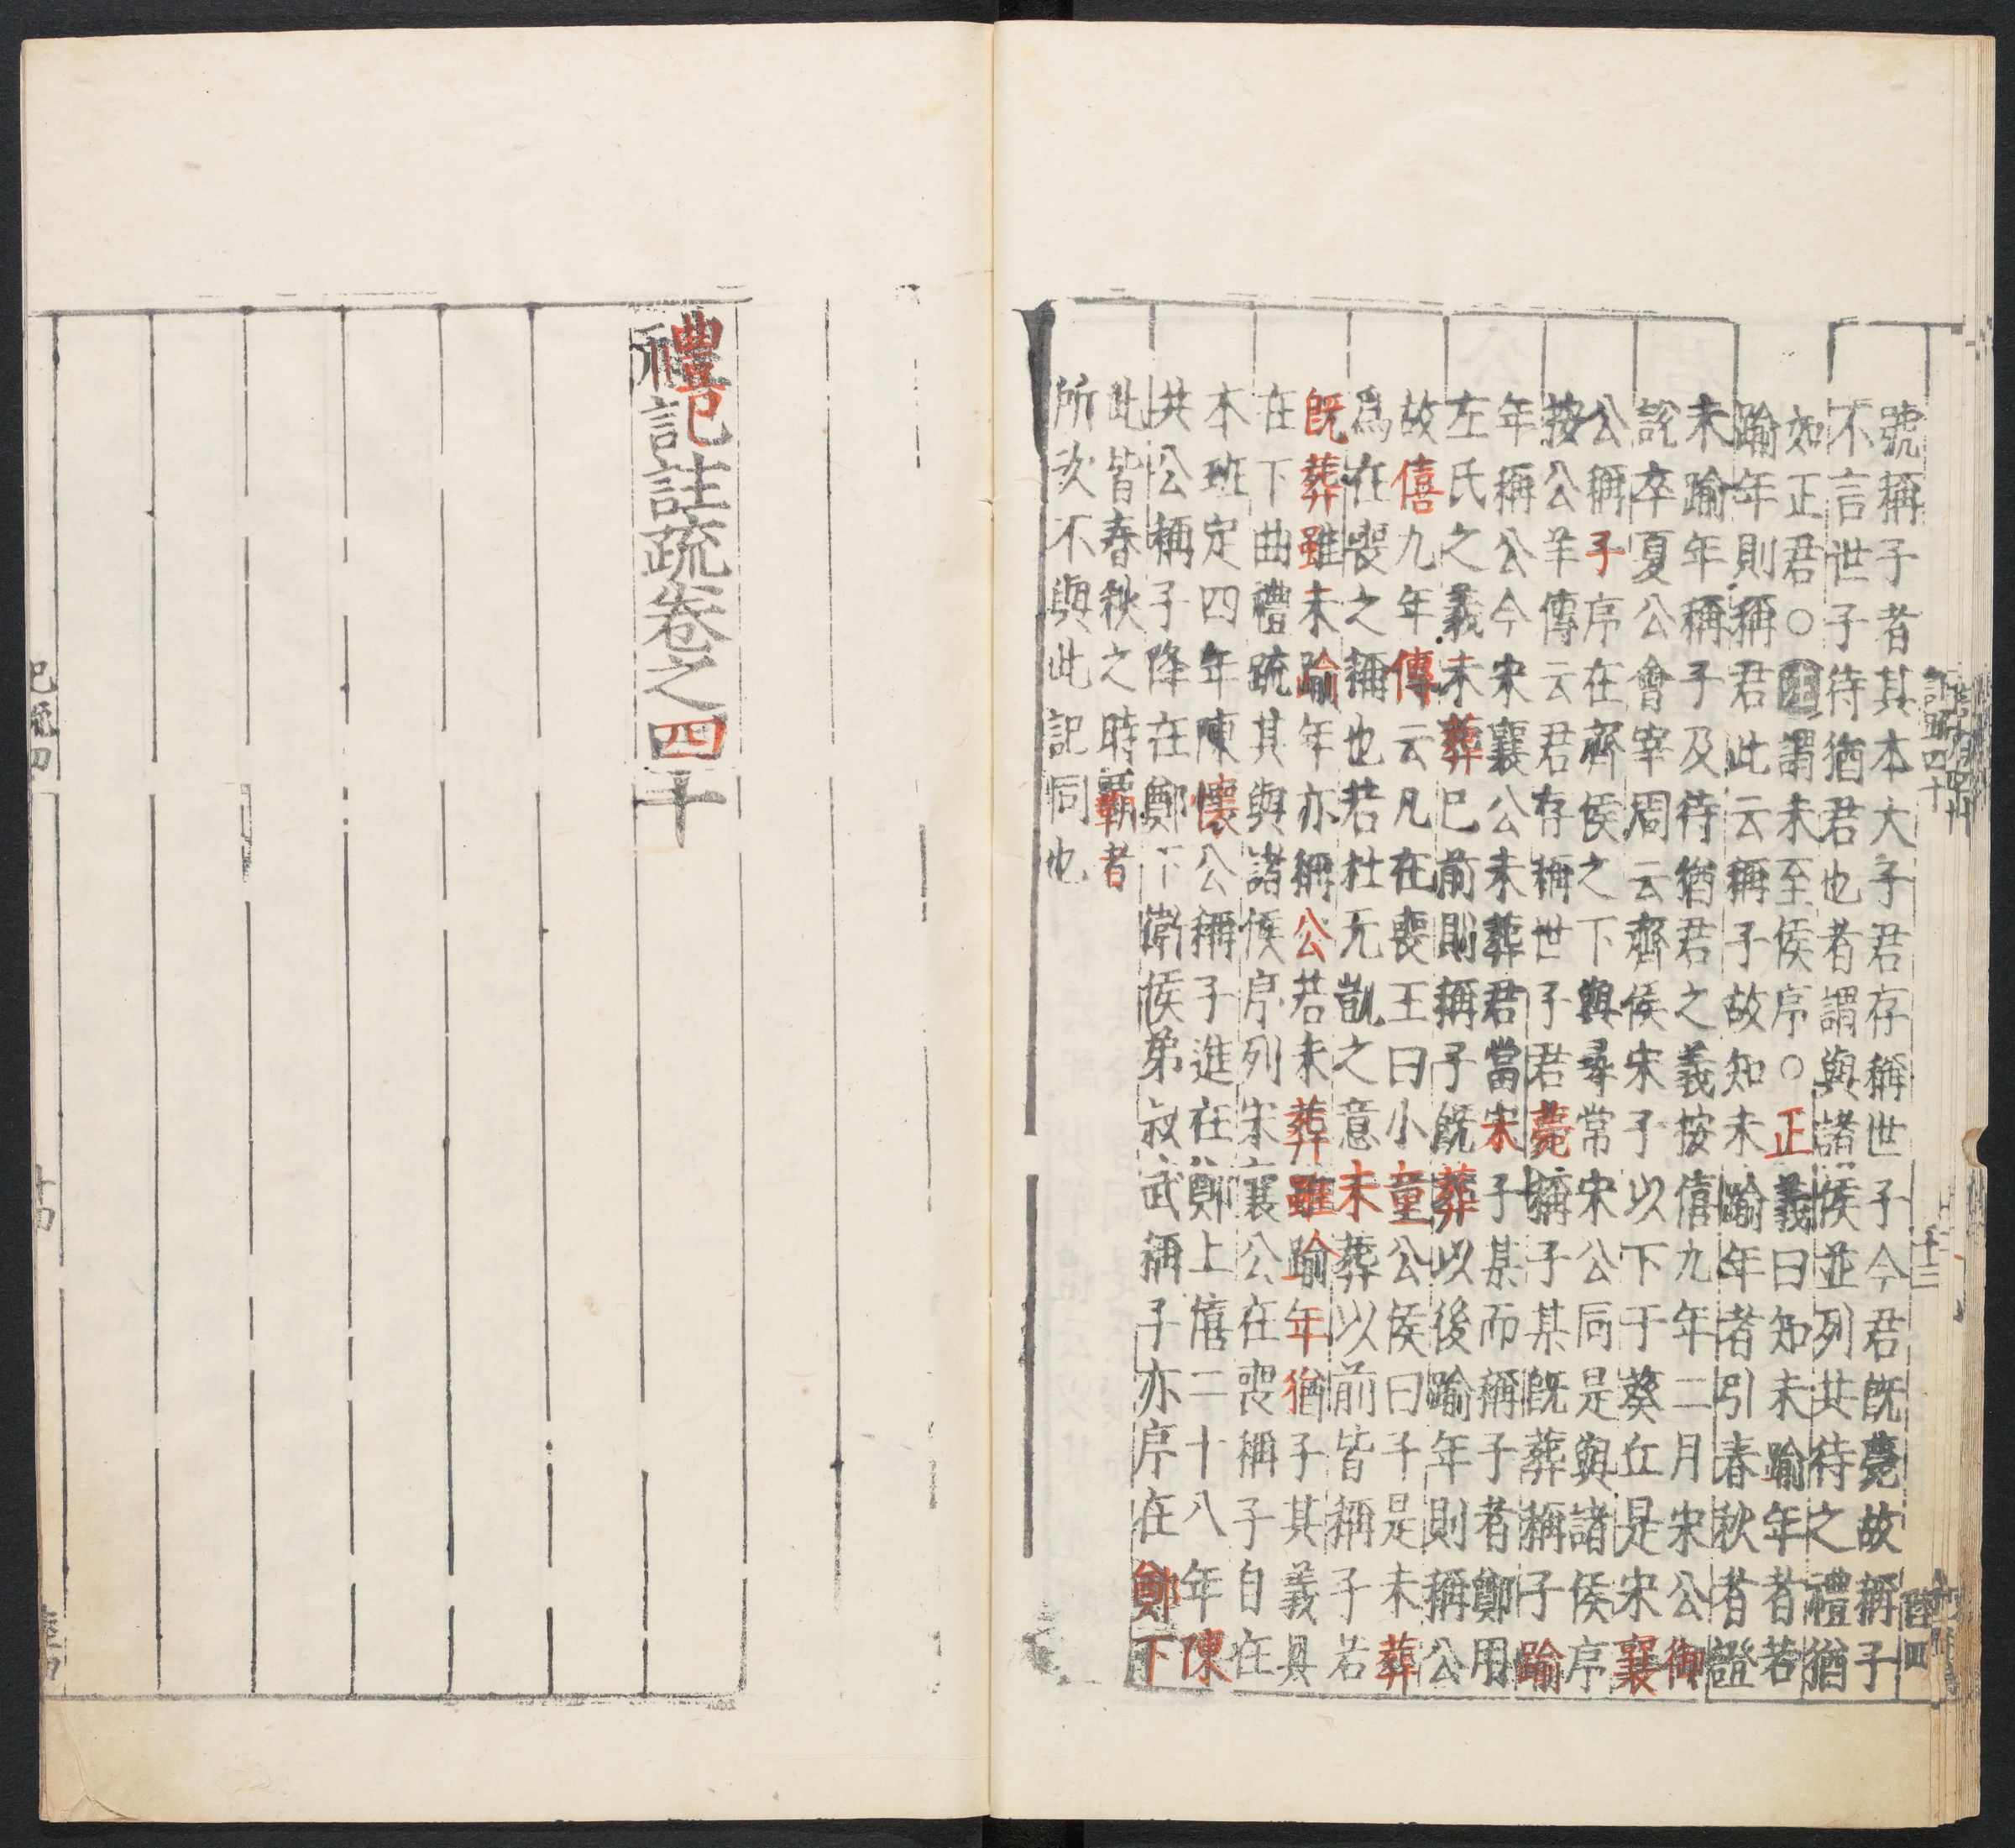 號稱子者其本大子君存稱世子今君既薨故稱子
不言世子待猶君也者謂與諸侯並列共待之禮猶
如正君○謂未至侯序○正義曰知未踰年者若
踰年則稱君此云稱子故知未踰年者引春秋者證
未踰年稱子及待猶君之義按僖九年二月宋公御
說卒夏公會宰周云齊侯宋子以下于葵丘是宋襄
公稱子序在齊侯之下與尋常宋公同是與諸侯序
按公羊傳云君存稱世子君薨稱子某既葬稱子踰
年稱公今宋襄公未葬君當宋子某而稱子者鄭用
左氏之義未葬已前則稱子既葬以後踰年則稱公
故僖九年傳云凡在喪王曰小童公侯曰子是未葬
爲在喪之稱也若杜元凱之意未葬以前皆稱子若
既葬雖未踰年亦稱公若未葬雖踰年猶子其義具
在下曲禮疏其與諸侯序列宋襄公在喪稱子自在
本班定四年陳懷公稱子進在鄭上僖二十八年陳
共公稱子降在鄭下衛侯弟叔武稱子亦序在鄭下
此皆春秋之時覇者
所次不與此記同也
禮記註疏卷之四十